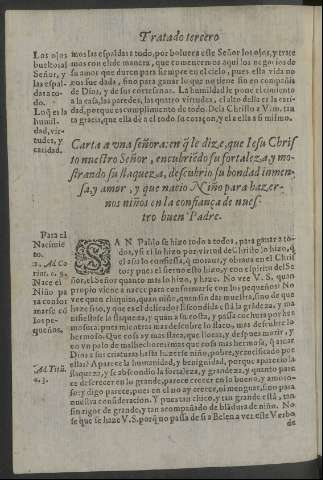 Tratado tercero
Los ojos
bueltos al
Señor, y
las espal-
das a to-
do.
Lo q̃ es la
humil-
dad, vir-
tudes, y
caridad.
mos las espaldas a todo, por boluer a este Señor los ojos, y trate
mos con el de manera, que comencemos aqui los negocios de
su amor que duren para siempre en el cielo, pues esta vida no
nos fue dada, sino para ganar lo que no tiene fin en compañia
de Dios, y de sus cortesanos. La humildad le pone el cimiento
a la casa, las paredes, las quatro virtudes, el alto della es la cari-
dad, porque es cumplimiento de todo. Dela Christo a V. m. por su
tanta gracia, que ella dè en el todo su coraçon, y el a ella todo si.
Carta a vna señora: en q̃ le dize, que Iesu Chris
to nuestro Señor, encubriẽdo su fortaleza, y mo-
strando su flaqueza, descubrio su bondad inmen-
sa, y amor, y que nacio Niño para hazer-
nos niños en la confiança de nues-
tro buen Padre.
Para el
Nacimiẽ
to.
1. Ad Co
rint. c. 9.
Nace el
Niño pa
ra confor
marse cõ
los pe-
queños.
SAN Pablo se hizo todo a todos, para ganar a to-
dos, y si el lo hizo por virtud de Christo, lo hizo, q̃
el assi lo confiessa, q̃ moraua, y obraua en el Chris
to: y pues el sieruo esto hizo, y con espiritu del Se
ñor, el Señor quanto mas lo hizo, y haze. No vee V. S. quan
propio viene a nacer para conformarse con los pequeños? No
vee quan chiquito, quan niño, quen sin dar muestras, sino de que
haze frio, y que es el delicado? Escondida està la grãdeza, y ma
nifiesta la flaqueza, y quan a su costa, y passa trechura por her-
mosura: pues mientras mas descubre lo flaco, mas descubre lo
hermoso. Que cosa ay mas flaca, que llorar, y despues morir, y
en vn palo de malhechores: mas que cosa mas hermosa, q̃ sacar
Dios a sus criaturas hasta hazerse niño, pobre, y crucificado por
ellas? Aparece la humanidad, y benignidad, porque aparecio la
flaqueza, y se abscondio la fortaleza, y grandeza, y quanto pare
ce descrecer en lo grande, parece crecer en lo bueno, y amoro-
so: y digo parece, pues en el no ay crecer, ni menguar, sino para
nuestra consideracion. Y pues tan chico, y tan grande està, y tan
sin rigor de grande, y tan acompañado de blãdura de niño. No
se que se haze V. S. porq̃ no passa de si a Belen a ver este Verbo
de
Ad Titũ.
c. 3.